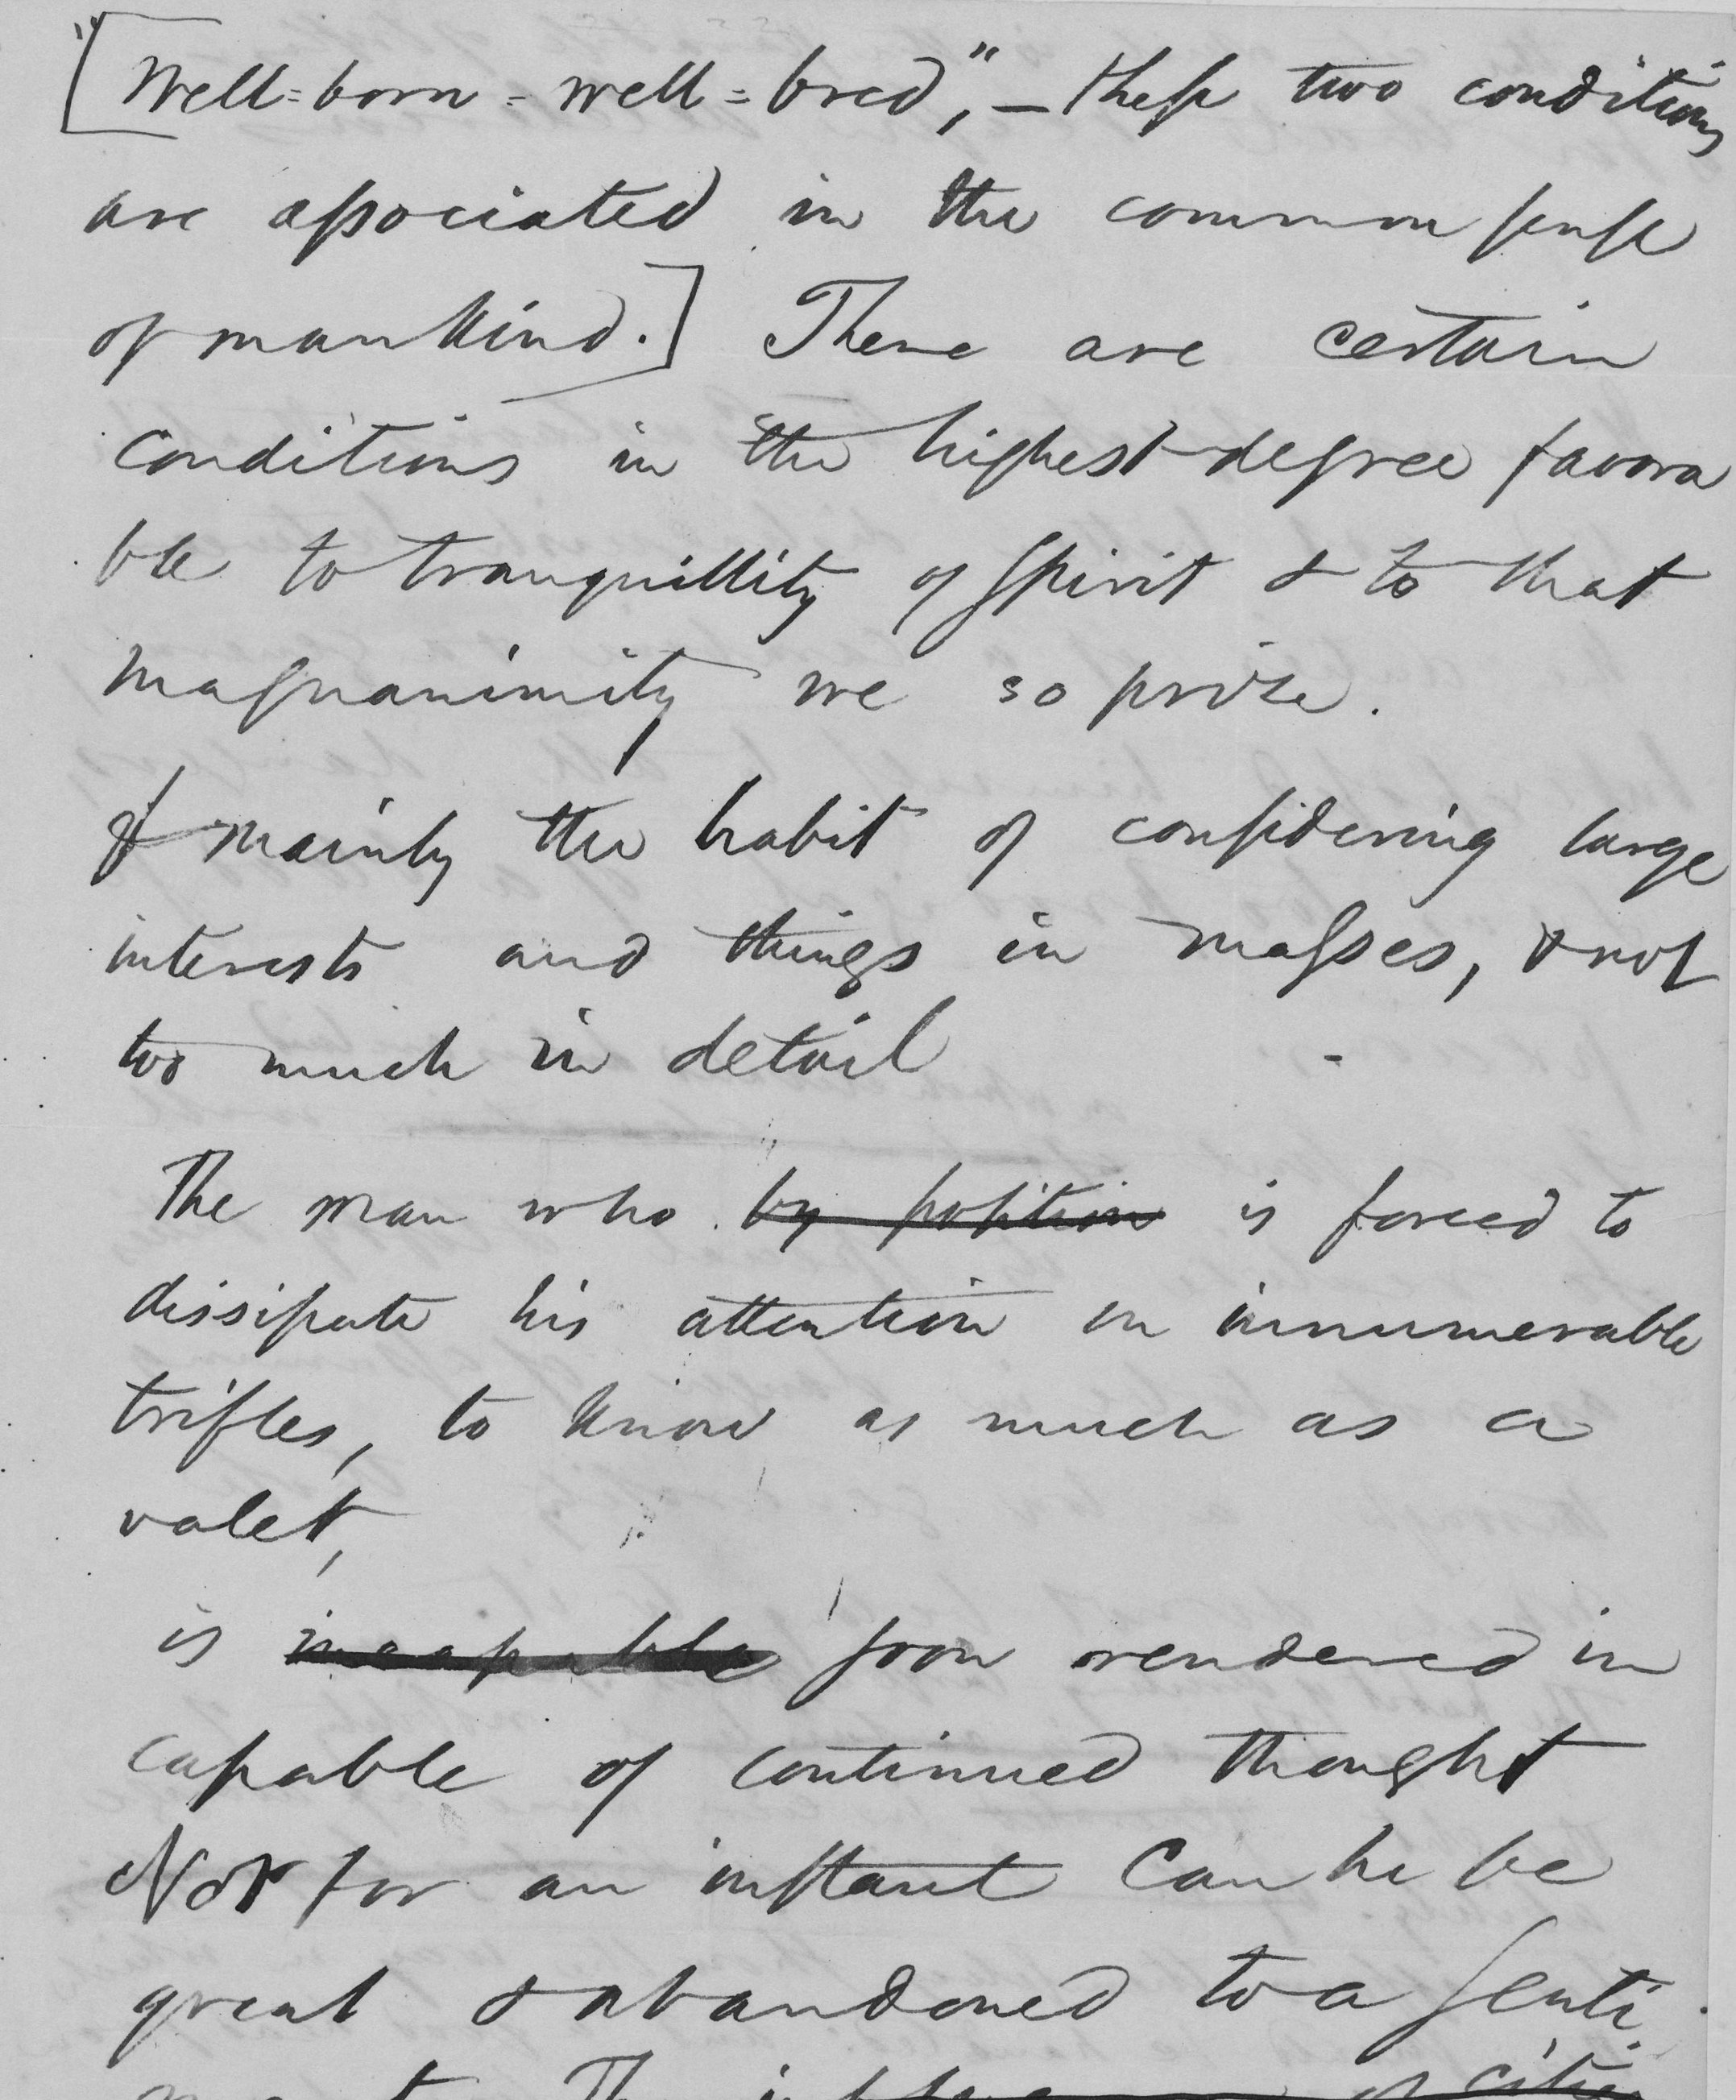 "[Well=born=well=bred,"— these two conditions
are associated in the common sense
of mankind.] There are certain
conditions in the highest degree favora
ble to tranquillity of spirit & to that
magnanimity we so prize.
& mainly the habit of considering large
interests and things in masses, & not
too much in detail
The man who by position is forced to
dissipate his attention on innumerable
trifles, to know as much as a
valet,
is incapable soon rendered in
capable of continued thought
Not for an instant can he be
great & abandoned to a senti